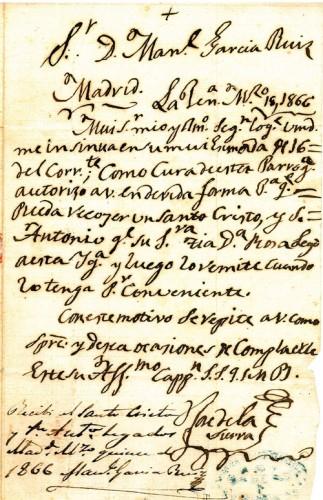 +
S.r D.n Man.l Garcia Ruiz
Madrid. La Ben.a de M.zo 18, 1866
Mui S.r mio y
me insinua en su mui estimada de 16
del Corr.te; Como Cura de esta Parroq.a
autorizo a V. en devida forma p.a q.e
Pueda recojer un Santo Cristo, y S.n
Antonio q.e su S.ra tia D.a Rosa legó
a esta Ygl.a y luego lo remite cuando
lo tenga p.r Conveniente.
Con este motivo se repite a V. como
spre. y desea ocasiones de complacerle
Este su Aff.mo Capp.n S. S. q. s. m. B.
José de la
Sierra
Recibi el Santo Cristo
y S.n Ant.o legados
Mad.d M.zo quince de
1866 Man.l Garcia Ruiz